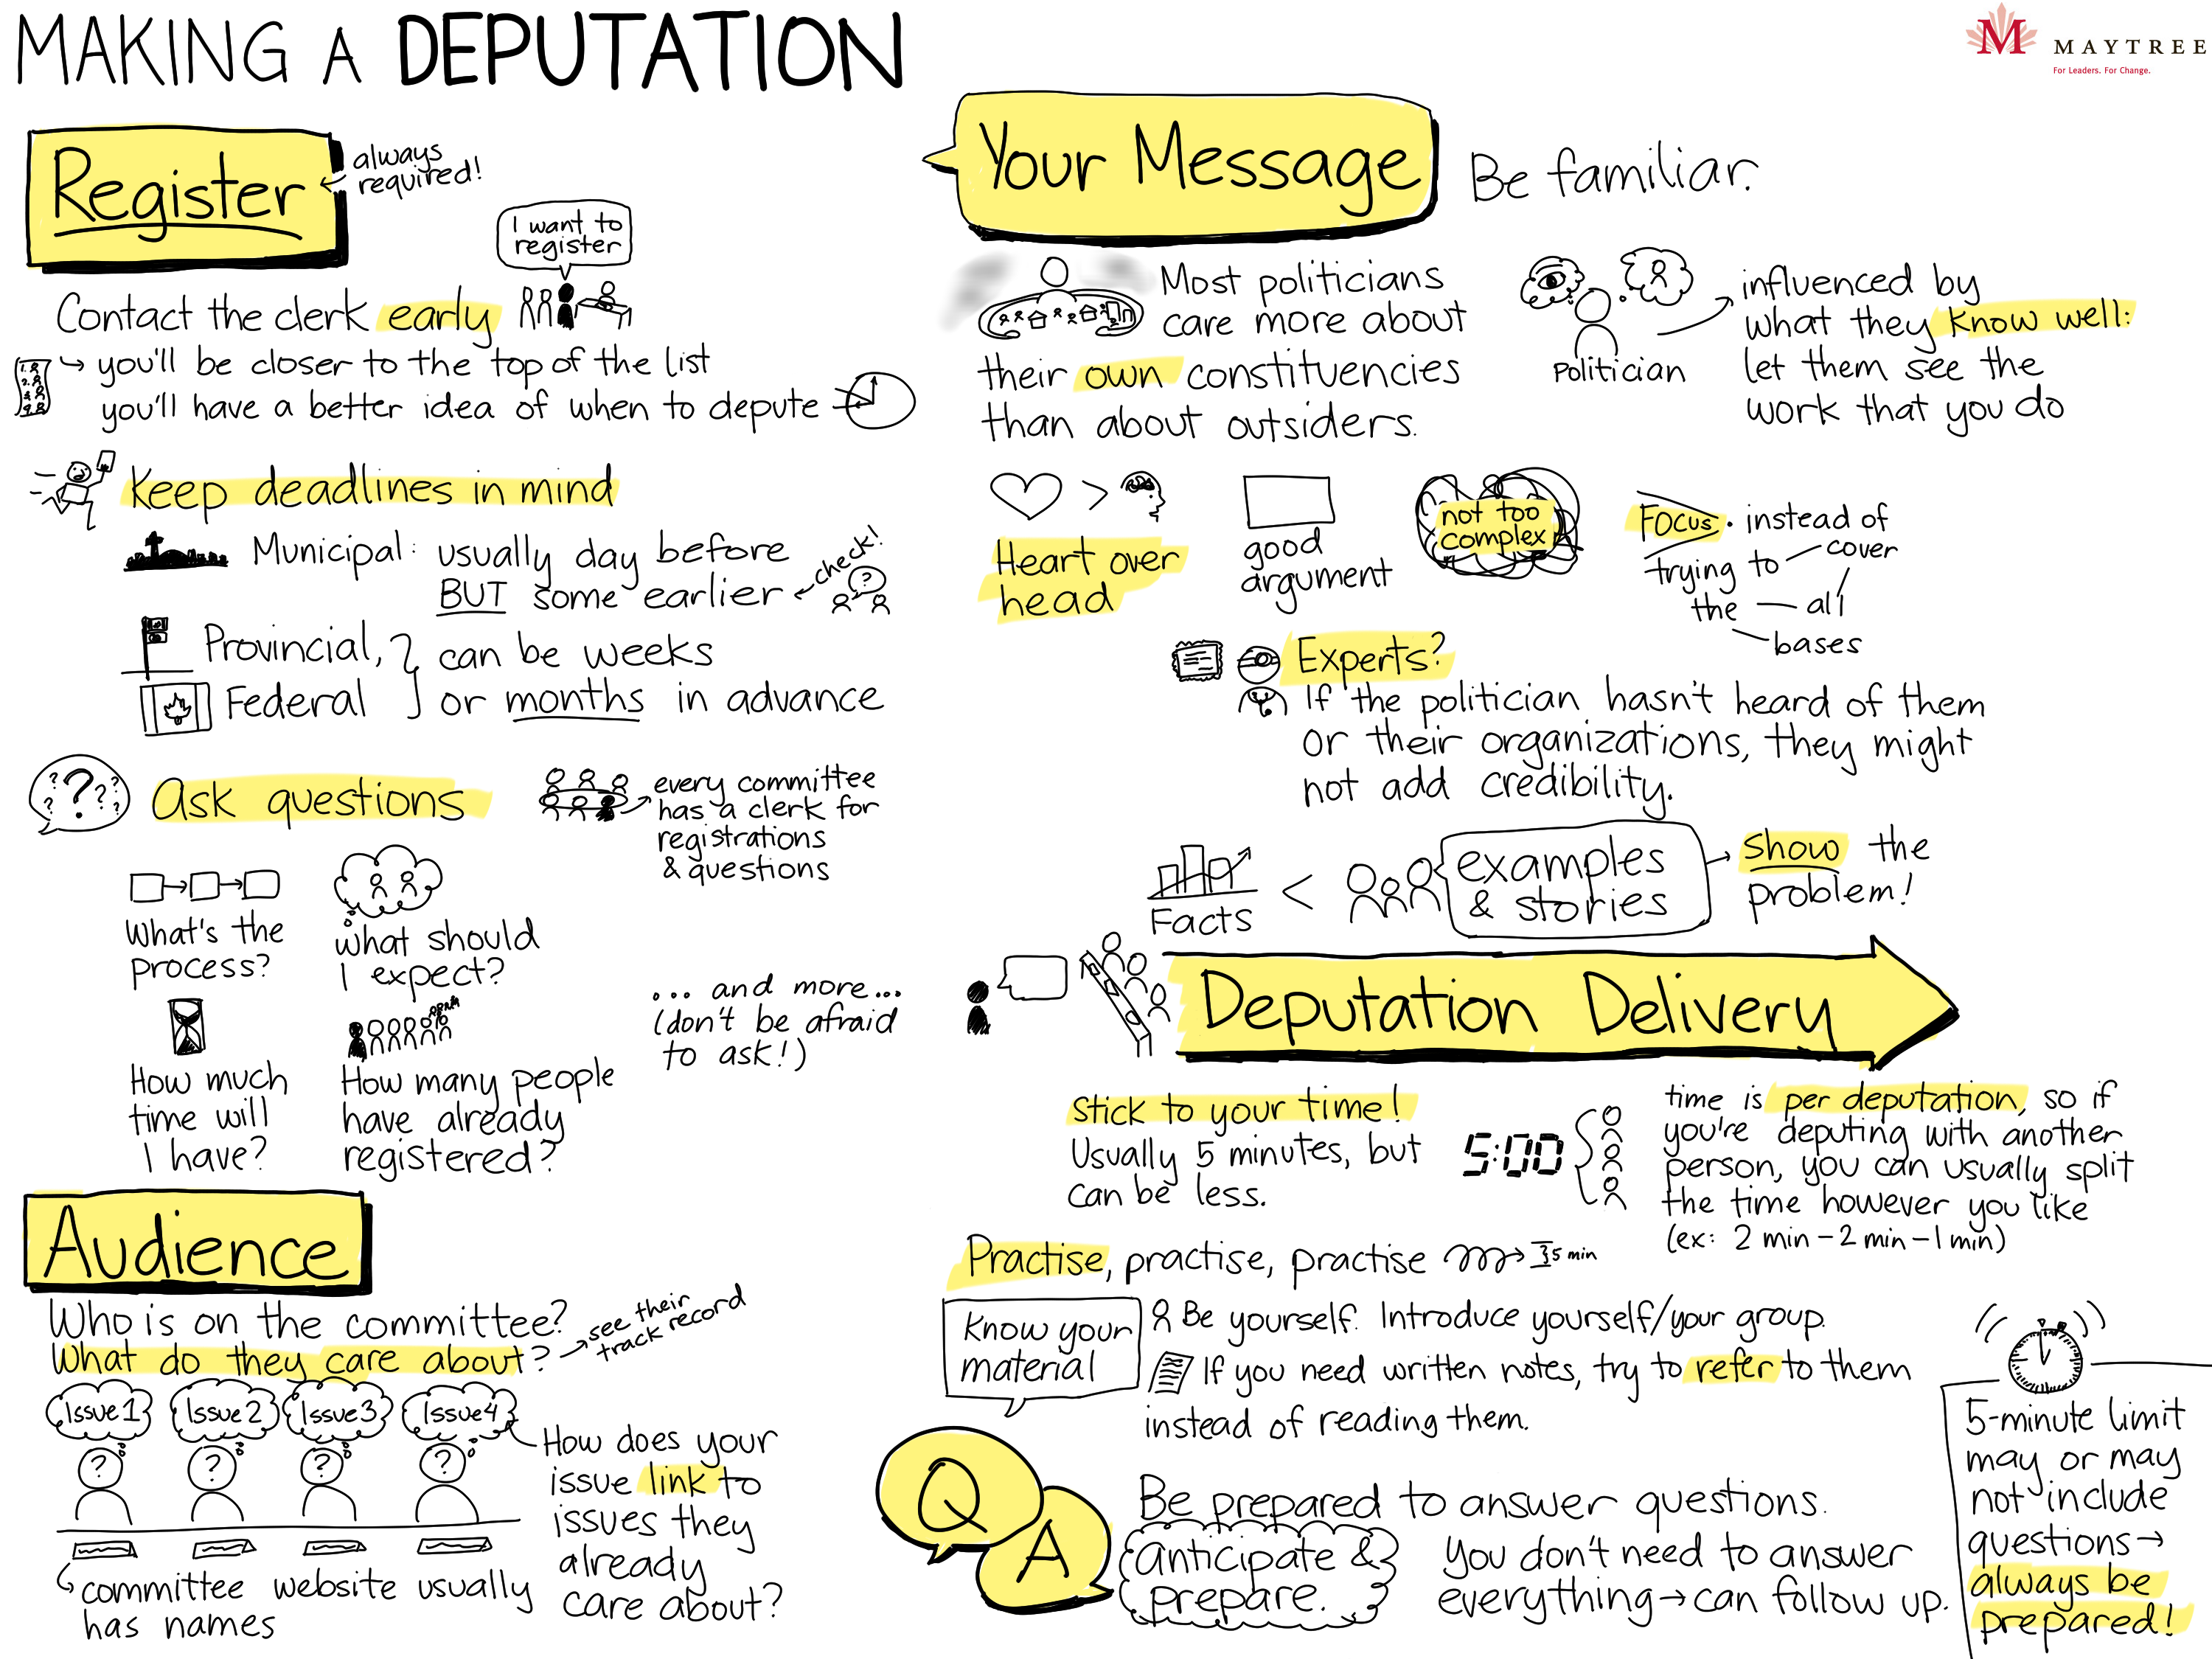 MAKING A DEPUTATION
MAYTREE
For Leaders. For Change.
Register
always
required!
I want to
register
Contact the clerk early
1.
2.
3.
4.
you'll be closer to the top of the list
you'll have a better idea of when to depute
Keep deadlines in mind
Municipal: usually day before
BUT some earlier
check!
?
Provincial,
Federal
can be weeks
or months in advance
? ? ? ? ? ?
Ask questions
every committee
has a clerk for
registrations
& questions
What's the
process?
what should
I expect?
How much
time will
I have?
How many people
have already
registered?
... and more...
(don't be afraid
to ask!)
Audience
Who is on the committee?
What do they care about?
see their
track record
Issue 1 Issue 2 Issue 3 Issue 4
? ? ? ?
committee website usually
has names
How does your
issue link to
issues they
already
care about?
Your Message
Be familiar.
Most politicians
care more about
their own constituencies
than about outsiders.
Politician
influenced by
what they know well:
let them see the
work that you do
>
Heart over
head
good
argument
not too
complex
Focus. instead of
trying to cover
the all
bases
Experts?
If the politician hasn't heard of them
or their organizations, they might
not add credibility.
Facts
<
examples
& stories
show the
problem!
Deputation Delivery
stick to your time!
Usually 5 minutes, but
can be less.
5:00
time is per deputation, so if
you're deputing with another
person, you can usually split
the time however you like
(ex: 2 min - 2 min - 1 min)
Practise, practise, practise
5 min
Know your
material
Be yourself. Introduce yourself/your group.
If you need written notes, try to refer to them
instead of reading them.
Q
A
Be prepared to answer questions.
anticipate &
prepare.
You don't need to answer
everything → can follow up.
5-minute limit
may or may
not include
questions →
always be
prepared!